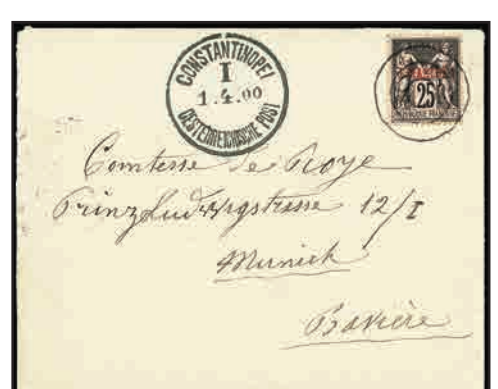 CONSTANTINOPEL
I
1.4.00
OESTERREICHISCHE POST
25
Comtesse de Roye
Prinz Ludwigstrasse 12/I
Munich
Bavière